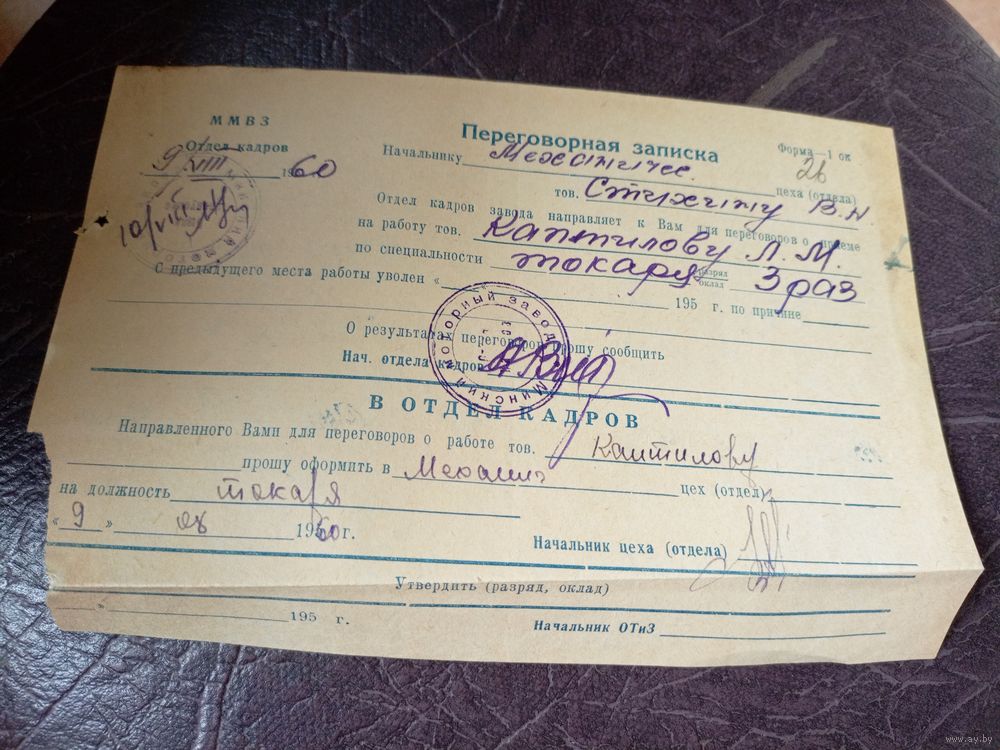 ММВЗ
Отдел кадров
9 VIII 1960
Переговорная записка
Форма—1 ок
26
Начальнику Механичес. цеха (отдела)
тов. Стухину В.Н.
Отдел кадров завода направляет к Вам для переговоров о приеме
на работу тов. Каптилову Л.М.
по специальности токаря разряд оклад 3 раз
С предыдущего места работы уволен « 195 г. по причине
О результатах переговоров прошу сообщить
Нач. отдела кадров
Минский моторный завод
В ОТДЕЛ КАДРОВ
Направленного Вами для переговоров о работе тов. Каптилову
прошу оформить в Механич цех (отдел)
на должность токаря
« 9 » 08 1960 г.
Начальник цеха (отдела)
Утвердить (разряд, оклад)
» 195 г.
Начальник ОТиЗ
www.ay.by